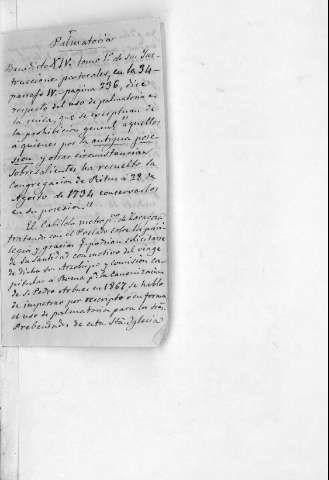 Palmatoria
Benedicto XIV. tomo 1º. de sus Ins-
trucciones pastorales, en la 34-
parrafo IV.- pagina 236, dice
respecto del uso de palmatoria en
la misa, que se exceptuan de
la prohibicion general "aquellos
á quienes por la antigua pose-
sion y otras circunstancias
sobresalientes ha resuelto la
Congregacion de Ritus á 28 de
Agosto de 1734 conservarlos
en su posesion."
El Cabildo metropno. de Zaragoza
tratando con el Prelado sobre los privi-
legios y gracias q. podrian solicitarse
de Su Santidad con motivo del viage
de dicho Sr. Arzobispo y comision ca-
pitular á Roma pa. la Canonizacion
de S. Pedro Arbues en 1867, se habló
de impetrar por rescripto ó en forma
el uso de palmatoria para los Sres.
Prebendados de esta Sta. Iglesia